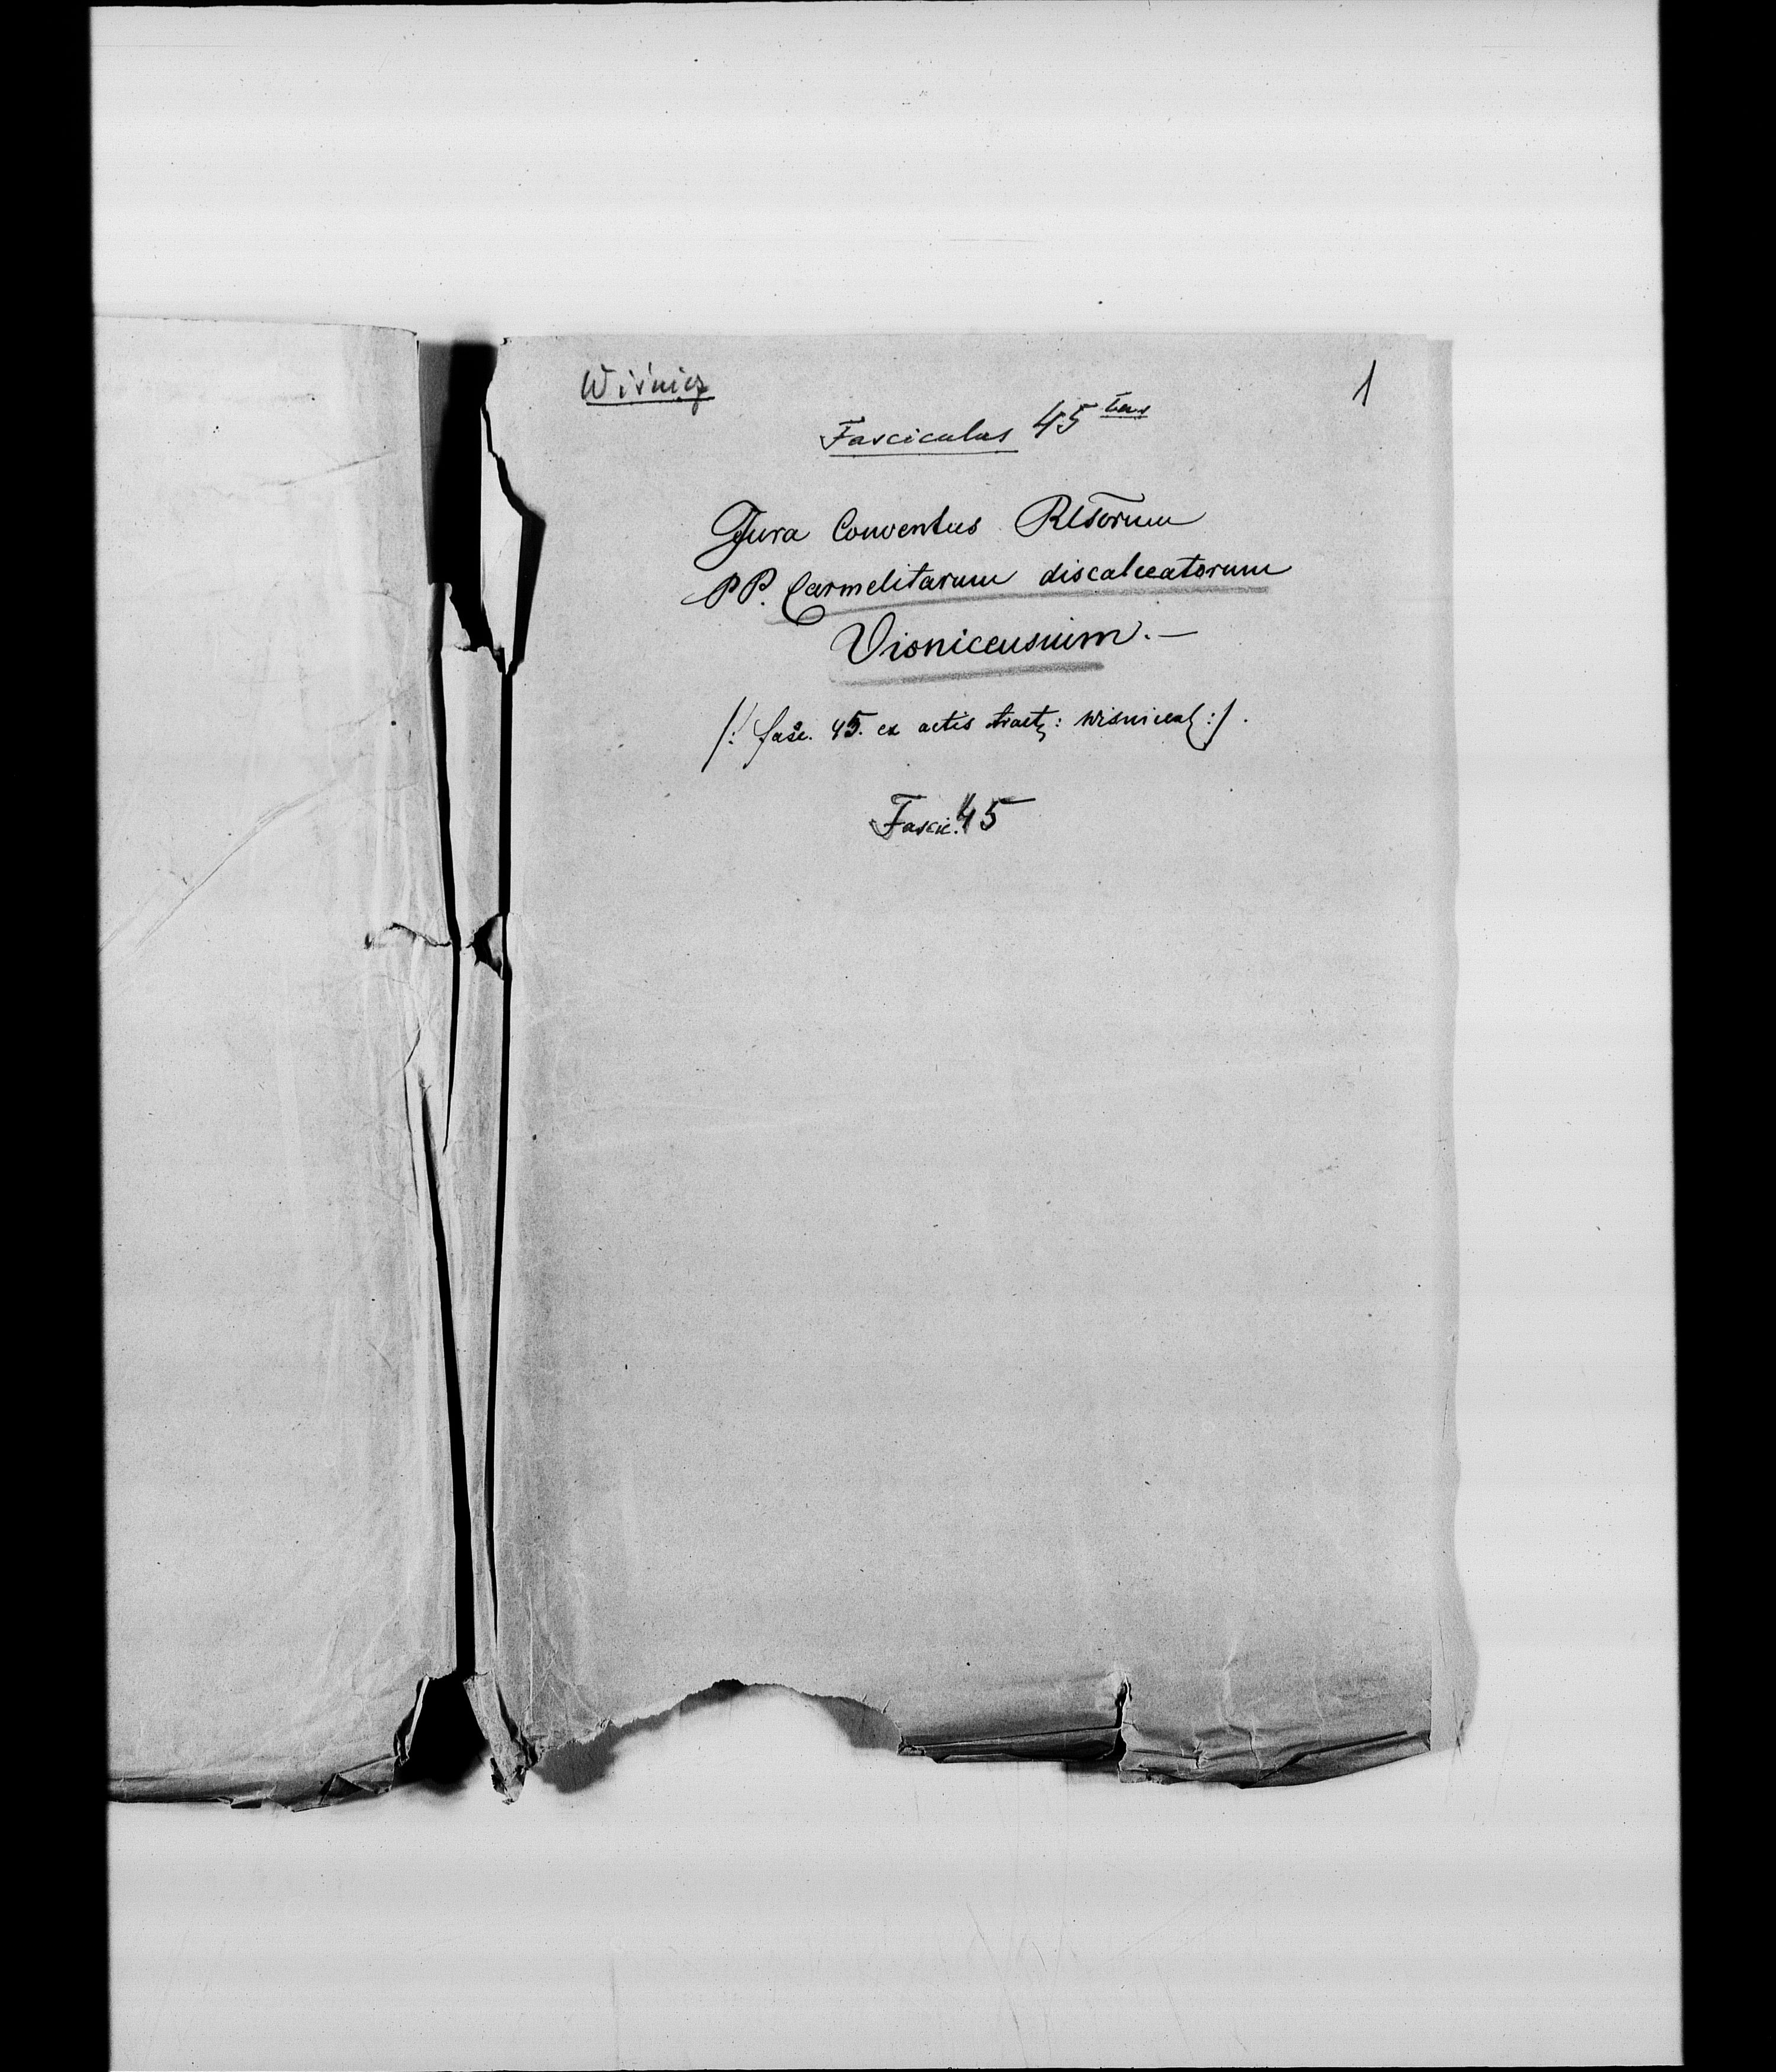 Wiśnicz
1
Fasciculus 45tus
Jura Conventus Rlsorum
PP. Carmelitarum discalceatorum
Visnicensium.—
/: fasc. 45. ex actis tract: Wisnicens :/.
Fascic. 45